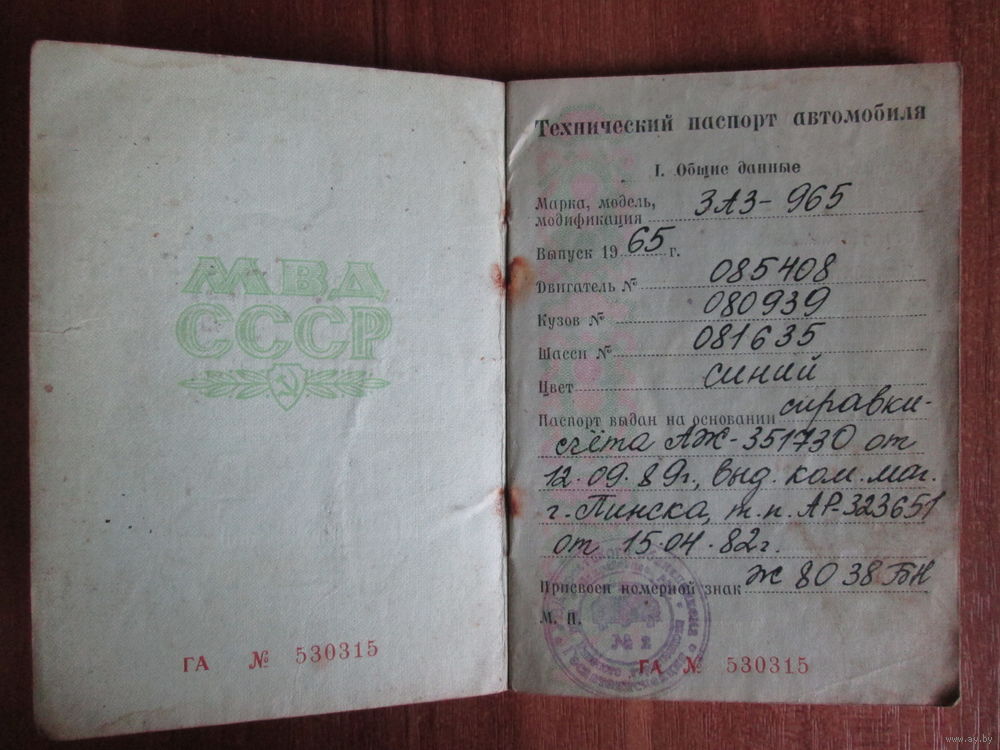 МВД
СССР
ГА № 530315
Технический паспорт автомобиля
I. Общие данные
Марка, модель,
модификация ЗАЗ-965
Выпуск 1965 г.
Двигатель № 085408
Кузов № 080939
Шасси № 081635
Цвет синий
Паспорт выдан на основании справки-
счёта АЖ-351730 от
12.09.89г., выд. ком. маг.
г. Пинска, т.п. АР-323651
от 15.04.82г.
Присвоен номерной знак Ж 8038 БН
М. П.
№ 2
ГА № 530315
www.ay.by